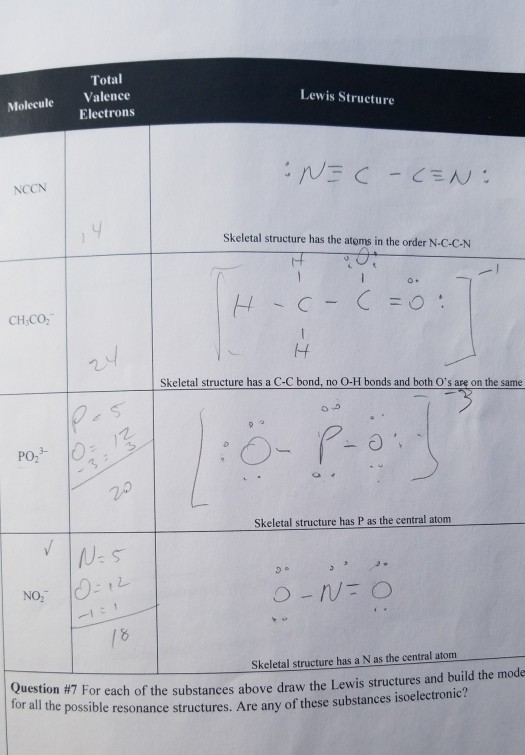 Molecule
Total
Valence
Electrons
Lewis Structure
NCCN
14
:N≡C-C≡N:
Skeletal structure has the atoms in the order N-C-C-N
CH₃CO₂⁻
24
H :O:
H-C-C=O: -1
H
Skeletal structure has a C-C bond, no O-H bonds and both O's are on the same
PO₂³⁻
P=5
O=12
-3=3
20
[:O-P-O:] -3
Skeletal structure has P as the central atom
NO₂⁻
✓
N=5
O=12
-1=1
18
O-N=O
Skeletal structure has a N as the central atom
Question #7 For each of the substances above draw the Lewis structures and build the mode
for all the possible resonance structures. Are any of these substances isoelectronic?